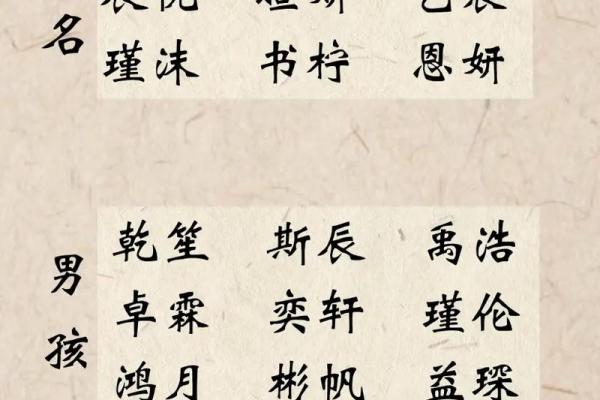 名
瑾沫 书柠 恩妍
男孩
乾笙 斯辰 禹浩
卓霖 奕轩 瑾伦
鸿月 彬帆 益琛